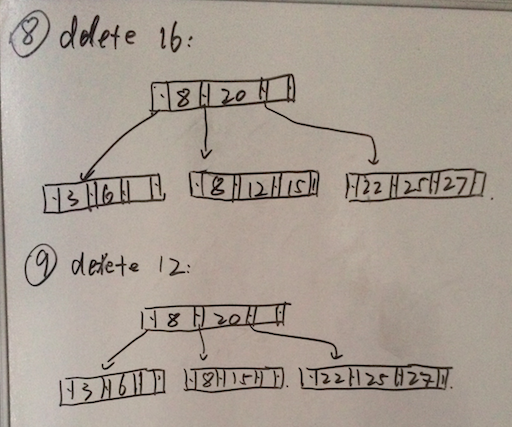 ⑧ delete 16:
8 20
3 6
8 12 15
22 25 27
⑨ delete 12:
8 20
3 6
8 15
22 25 27